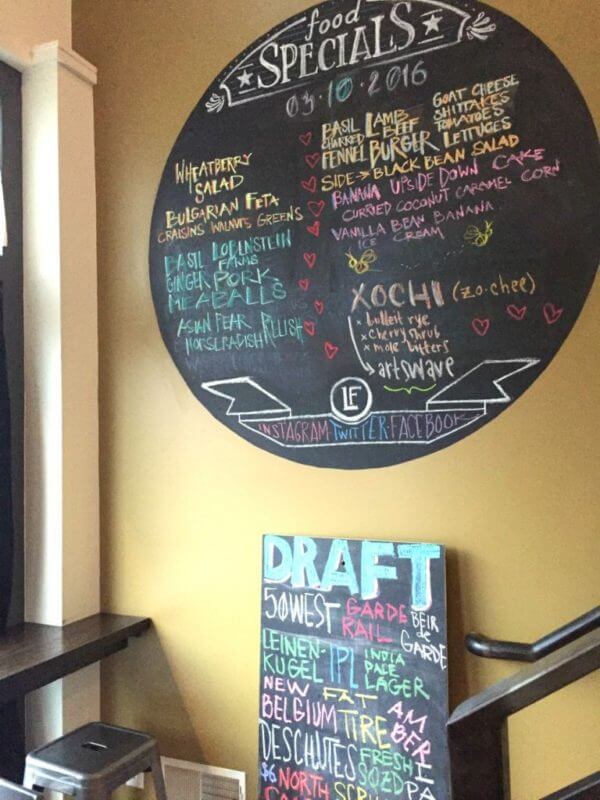 food
SPECIALS
03.10.2016
WHEATBERRY
SALAD
BULGARIAN FETA
CRAISINS WALNUTS GREENS
BASIL LOBENSTEIN
FARMS
GINGER PORK
MEABALLS
ASIAN PEAR RELISH
HORSERADISH
BASIL LAMB GOAT CHEESE
CHARRED BEEF SHITTAKES
TOMATOES
FENNEL BURGER LETTUCES
SIDE → BLACK BEAN SALAD
BANANA UPSIDE DOWN CAKE
CURRIED COCONUT CARAMEL CORN
VANILLA BEAN BANANA
ICE CREAM
XOCHI (zo·chee)
x bulleit rye
x cherry shrub
x mole bitters
→ artswave
LF
INSTAGRAM·TWITTER·FACEBOOK
DRAFT
50WEST GARDE RAIL BEIR de GARDE
LEINEN-KUGEL IPL INDIA PALE LAGER
NEW BELGIUM FAT TIRE AMBER
DESCHUTES FRESH SQZD IPA
$6 NORTH